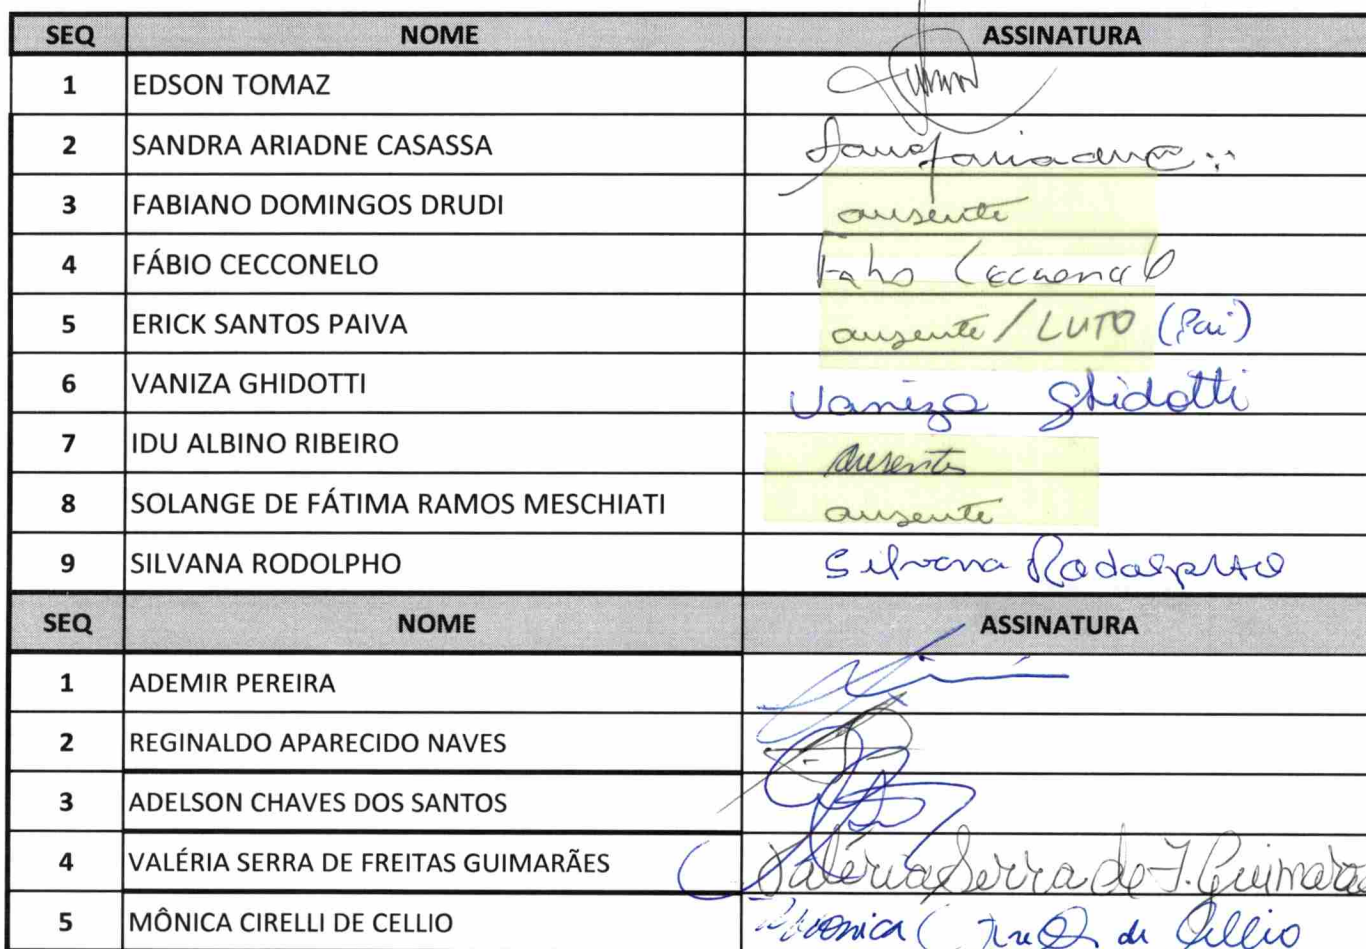 SEQ NOME ASSINATURA
1 EDSON TOMAZ
2 SANDRA ARIADNE CASASSA
3 FABIANO DOMINGOS DRUDI ausente
4 FÁBIO CECCONELO
5 ERICK SANTOS PAIVA ausente / LUTO (Pai)
6 VANIZA GHIDOTTI Vaniza Ghidotti
7 IDU ALBINO RIBEIRO ausente
8 SOLANGE DE FÁTIMA RAMOS MESCHIATI ausente
9 SILVANA RODOLPHO Silvana Rodolpho
SEQ NOME ASSINATURA
1 ADEMIR PEREIRA
2 REGINALDO APARECIDO NAVES
3 ADELSON CHAVES DOS SANTOS
4 VALÉRIA SERRA DE FREITAS GUIMARÃES Valéria Serra de F. Guimarães
5 MÔNICA CIRELLI DE CELLIO Monica de Cellio